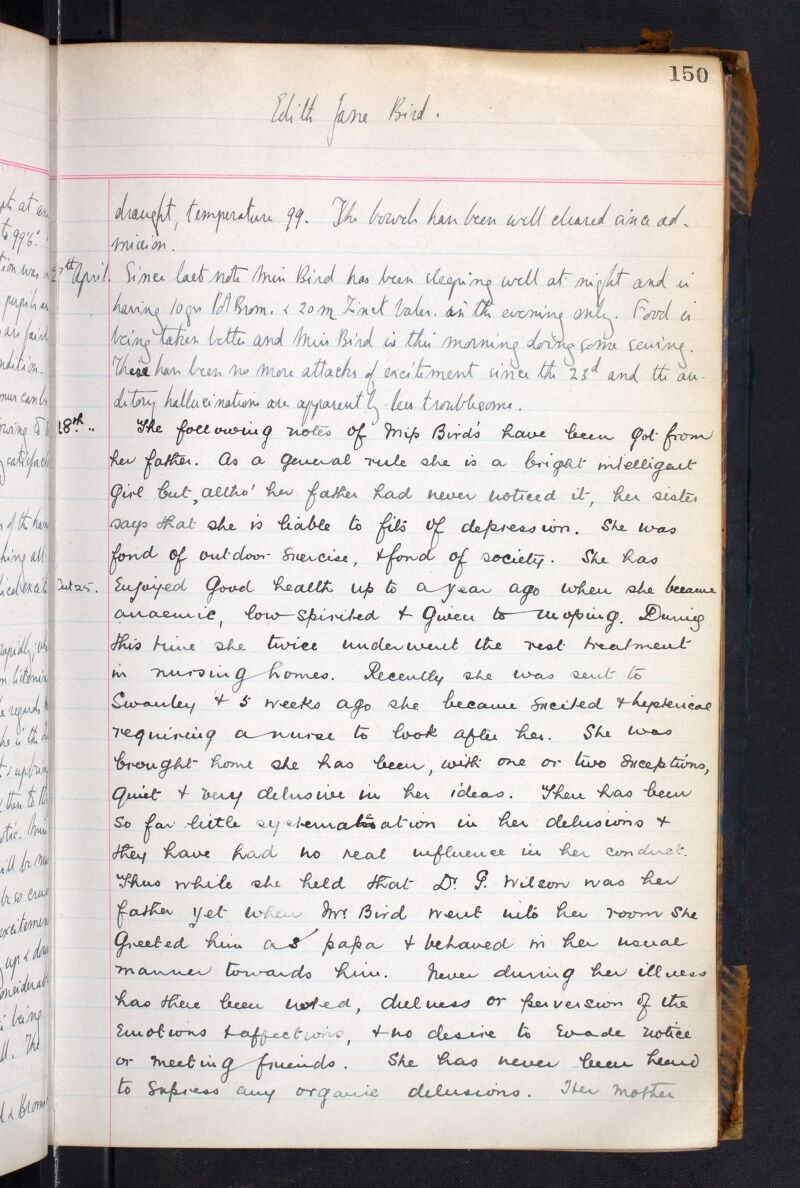 150
Edith Jane Bird.
draught, temperature 99. The bowels have been well cleared since ad-
mission.
27th April. Since last note Miss Bird has been sleeping well at night and is
having 10 grs Brom. & 20 m Tinct Valer. in the evening only. Food is
being taken better and Miss Bird is this morning doing some sewing.
There have been no more attacks of excitement since the 23d and the au-
ditory hallucinations are apparently less troublesome.
28th „ The following notes of Miss Bird's have been got from
her father. As a general rule she is a bright intelligent
girl but, altho' her father had never noticed it, her sister
says that she is liable to fits of depression. She was
fond of outdoor exercise, & fond of society. She has
enjoyed good health up to a year ago when she became
anaemic, low spirited & given to moping. During
this time she twice underwent the rest treatment
in nursing homes. Recently she was sent to
Swanley & 5 weeks ago she became excited & hysterical
requiring a nurse to look after her. She was
brought home she has been, with one or two exceptions,
quiet & very delusive in her ideas. There has been
so far little systematisation in her delusions &
they have had no real influence in her conduct.
Thus while she held that Dr. G. Wilson was her
father yet when Mr Bird went into her room she
greeted him as papa & behaved in her usual
manner towards him. Never during her illness
has there been noted, dulness or perversion of the
emotions & affections, & no desire to evade notice
or meeting friends. She has never been heard
to express any organic delusions. Her mother